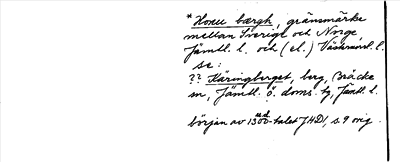 *Honu bærgh, gränsmärke
mellan Sverige och Norge,
Jämtl. l. och (el.) Västernorrl. l.
se:
?? Käringberget, berg, Bräcke
sn, Jämtl. ö. doms. tg, Jämtl. l.
början av 1300-talet JHD1, s. 9 orig.